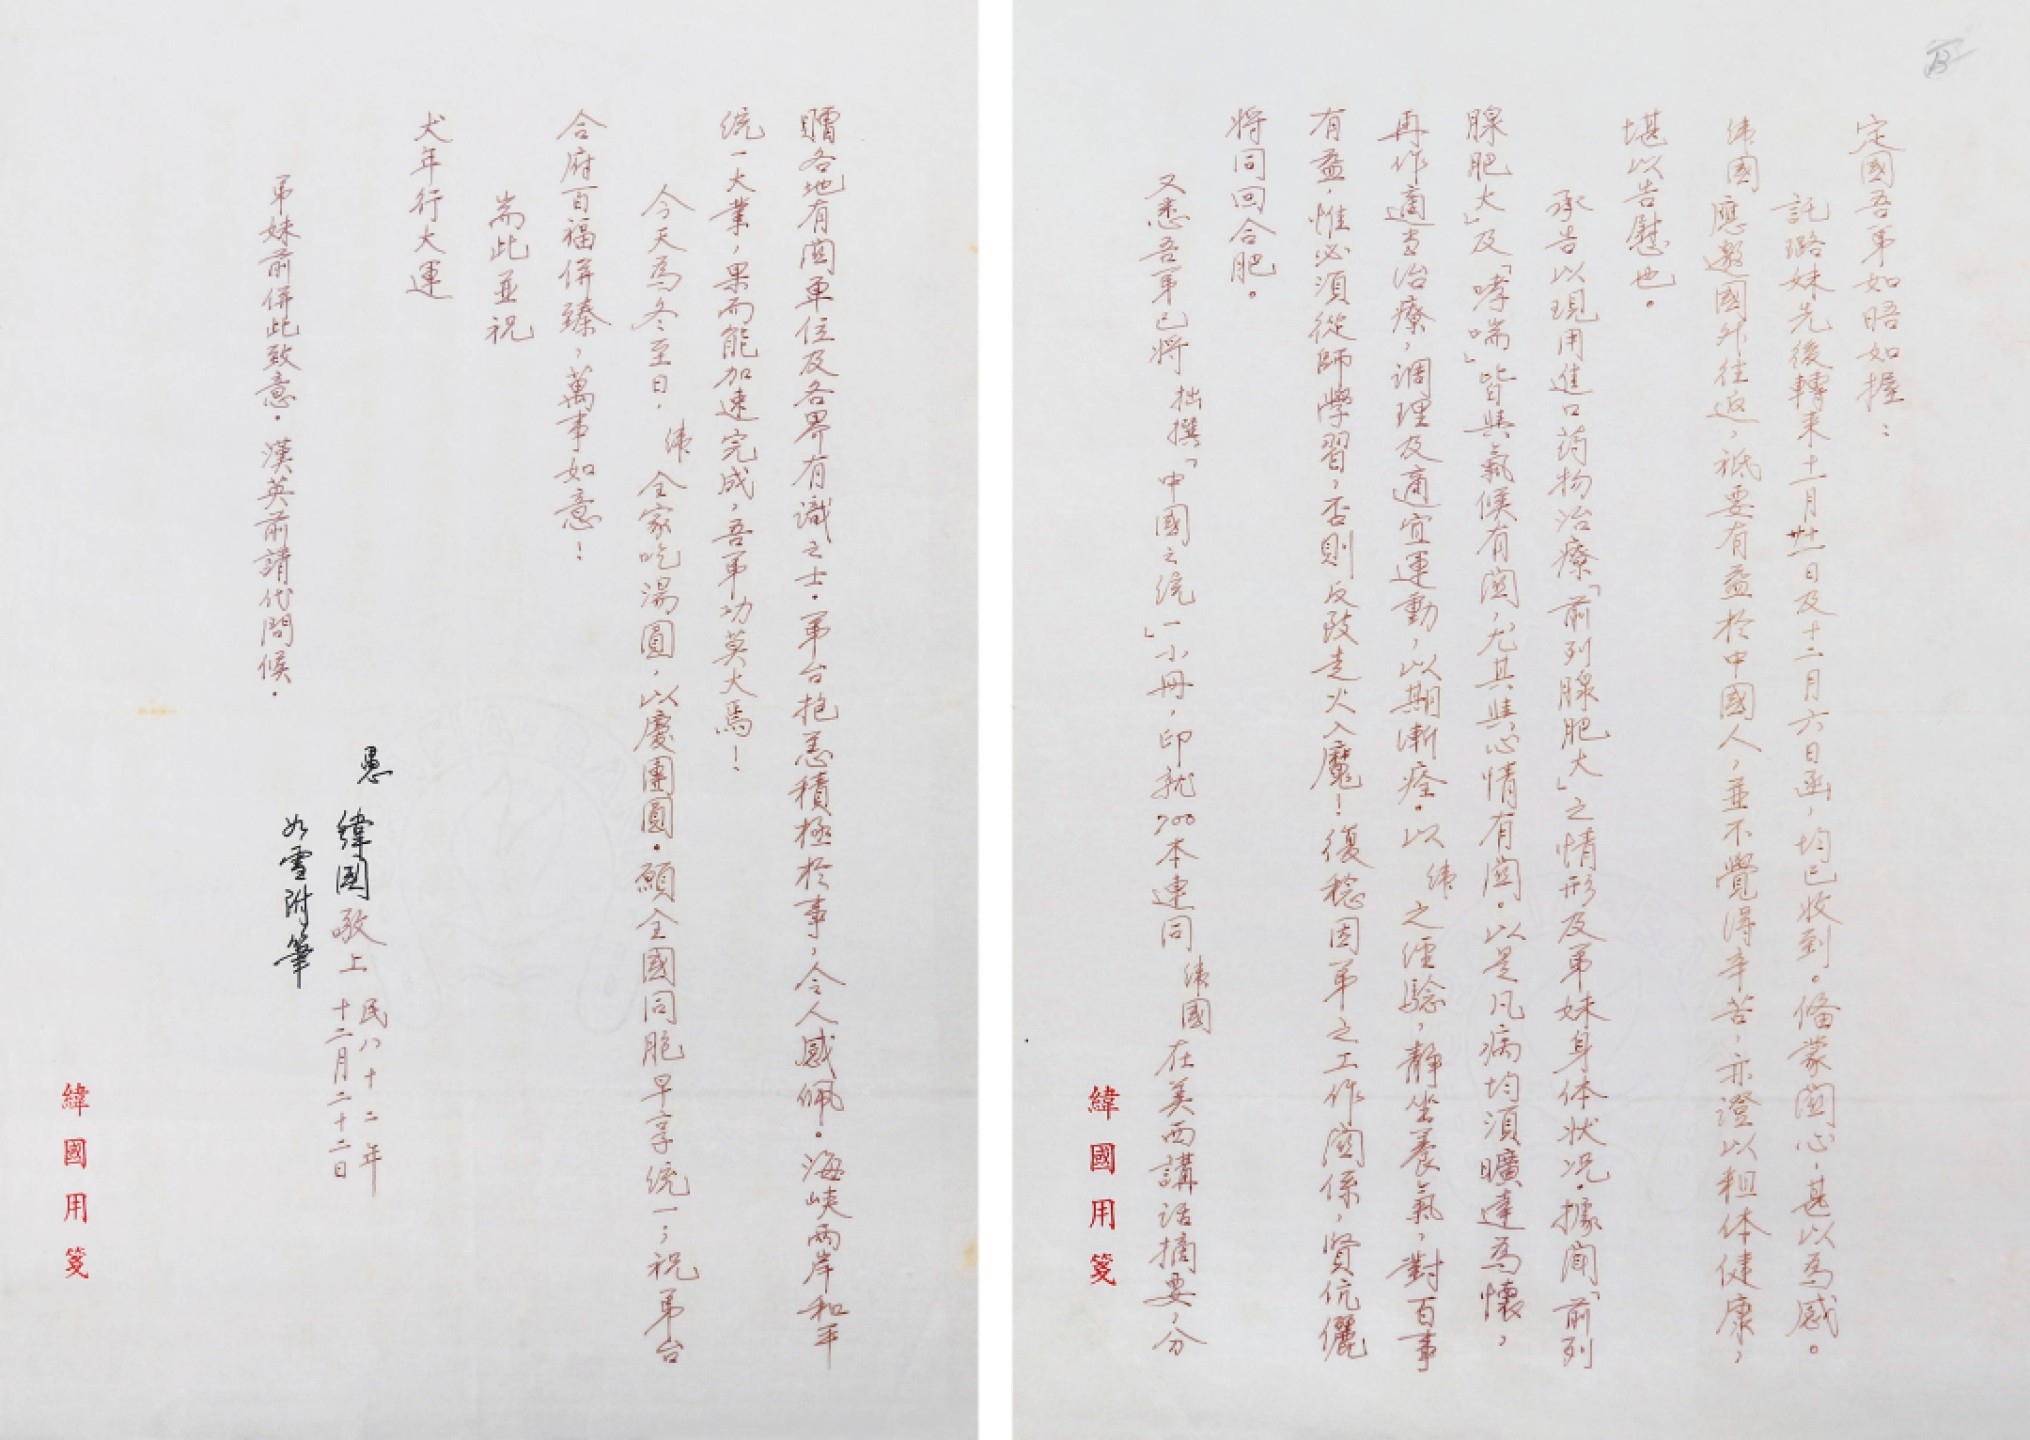 定國吾弟如晤如握：
託璐妹先後轉來十一月廿一日及十二月六日函，均已收到。備蒙関心，甚以為感。
緯國應邀國外往返，祇要有益於中國人，並不覺得辛苦，亦證以粗体健康，
堪以告慰也。
承告以現用進口药物治療「前列腺肥大」之情形及弟妹身体状况。據聞「前列
腺肥大」及「哮喘」皆與氣候有関，尤其與心情有関。以是凡病均須曠達為懷，
再作適當治療，调理及適宜運動，以期漸痊。以緯之經驗，靜坐養氣，對百事
有益，惟必須從師學習，否則反致走火入魔！復稔因弟之工作関係，賢伉儷
將同回合肥。
又悉吾弟已將拙撰「中國之统一」小冊，印就700本連同緯國在美西講話摘要，分
贈各地有関單位及各界有識之士。弟台抱恙積極於事，令人感佩。海峽兩岸和平
统一大業，果而能加速完成，吾弟功莫大焉！
今天為冬至日，緯全家吃湯圓，以慶團圓。願全國同胞早享统一；祝弟台
合府百福併臻，萬事如意！
耑此並祝
犬年行大運
弟妹前併此致意。漢英前請代問候。
愚
緯國敬上
民八十二年
十二月二十二日
如雪附筆
緯國用箋
緯國用箋